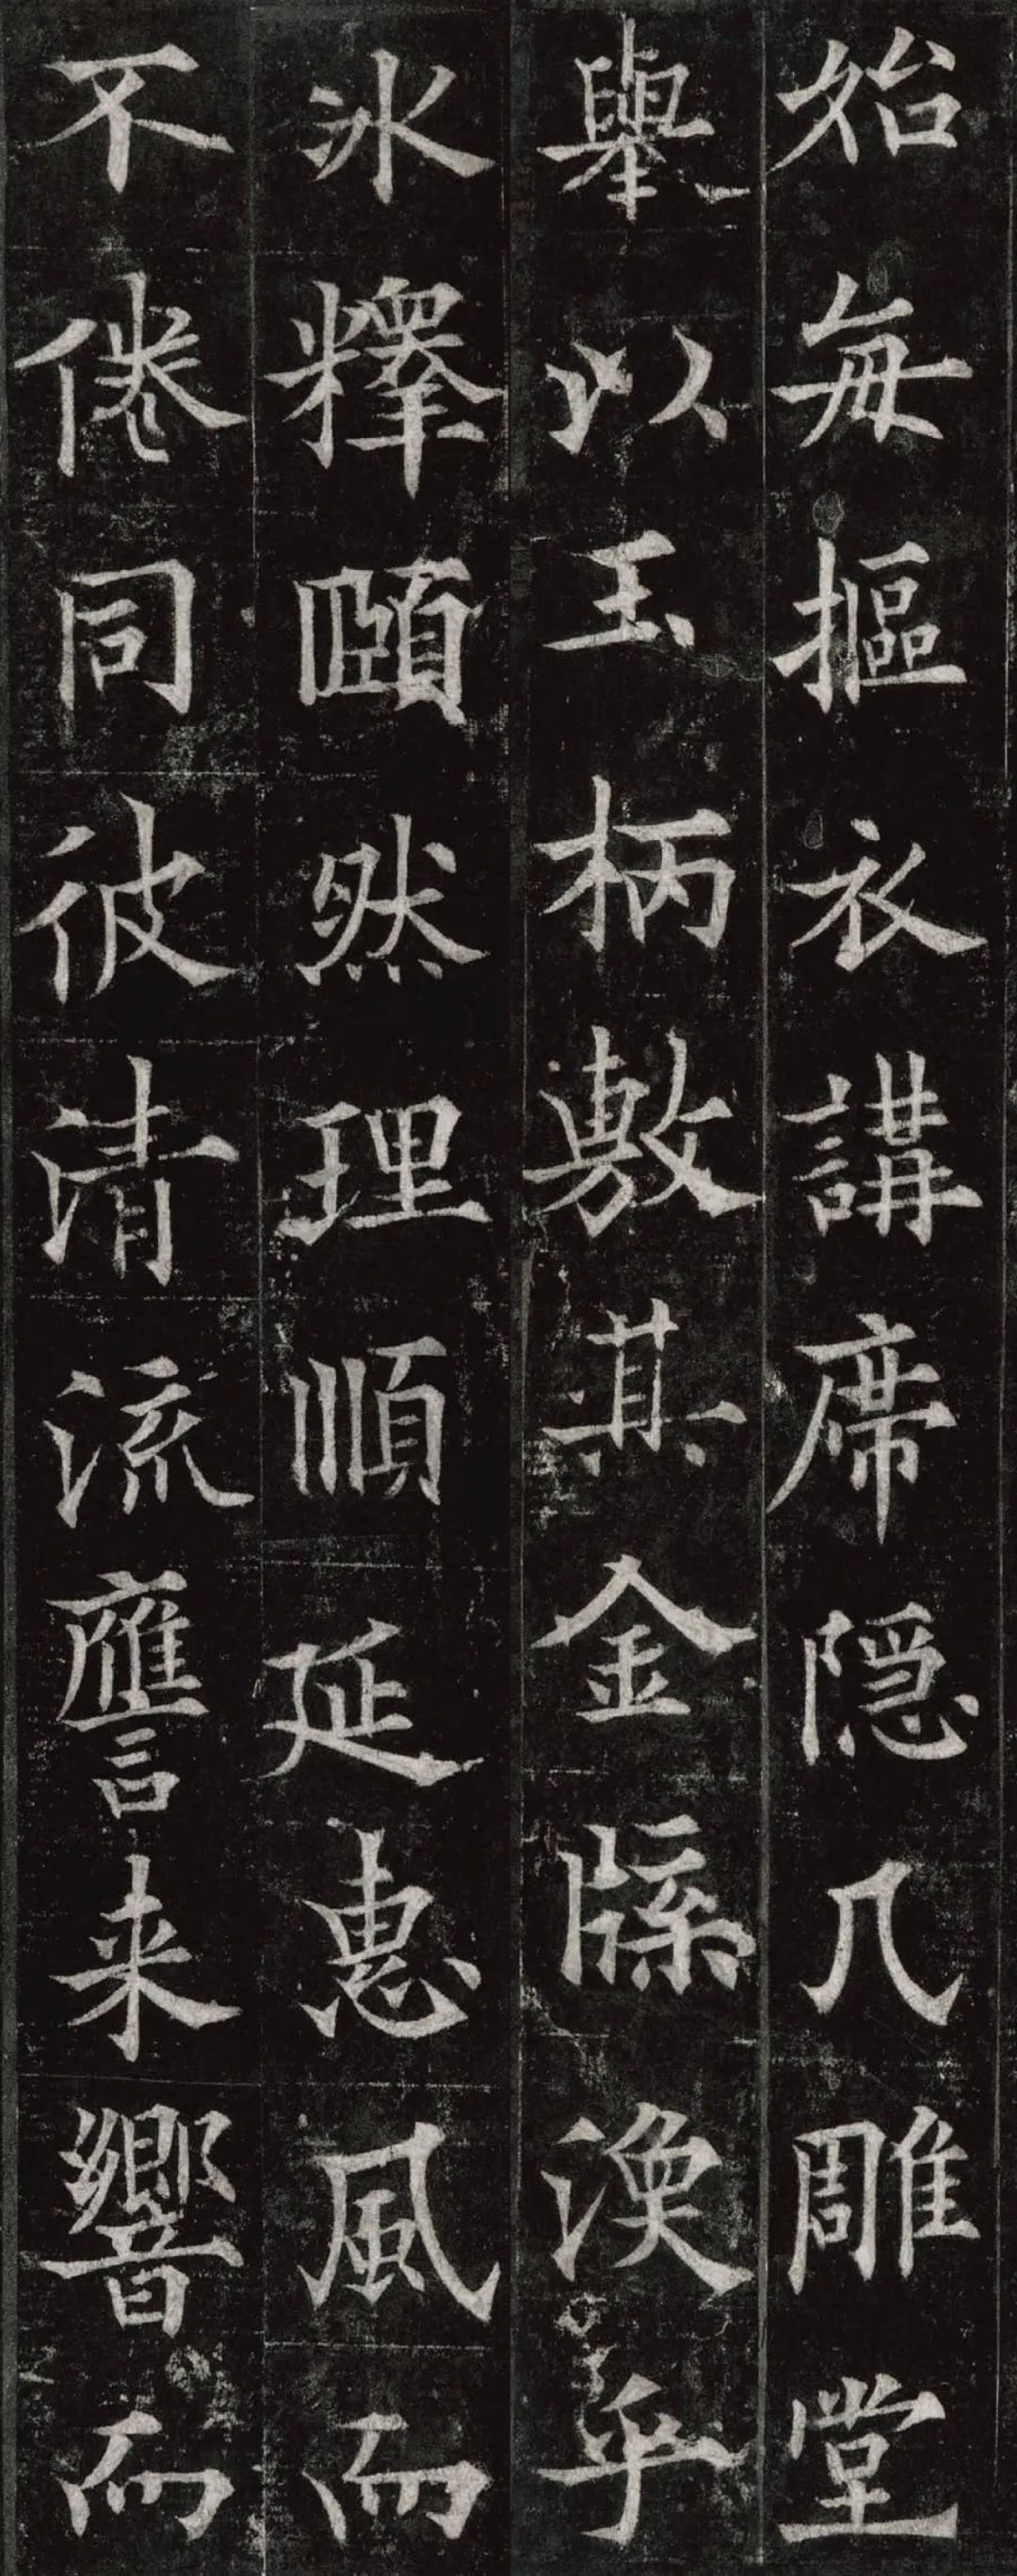 始每摳衣講席隠几雕堂
舉以玉柄敷其金縢渙乎
氷釋頤然理順延惠風而
不倦同彼清流譍来響而